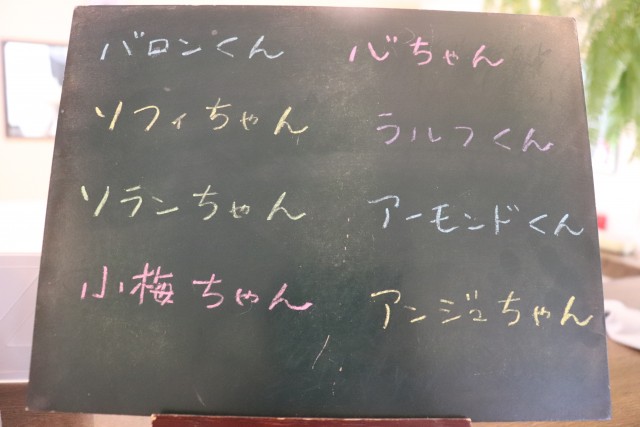 バロンくん
ソフィちゃん
ソランちゃん
小梅ちゃん
心ちゃん
ラルフくん
アーモンドくん
アンジュちゃん